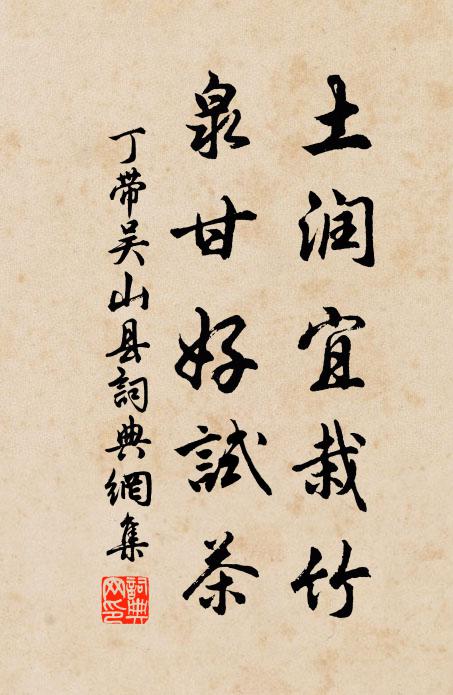 土润宜栽竹
泉甘好試茶
丁带吴山县詞典網集
詞典網印